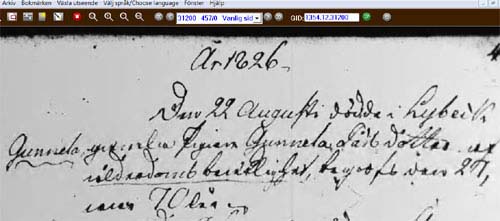 Arkiv Bokmärken Växla utseende Välj språk/Choose language Fönster Hjälp
31200 457/0 Vanlig sid GID: 1354.12.31200
År 1826.
Den 22 Augusti dödde i Lybeck
Gunnela, gamla Pigan Gunnela Påls Dotter af
ålderdoms bräcklighet, begrofs den 27,
70 år